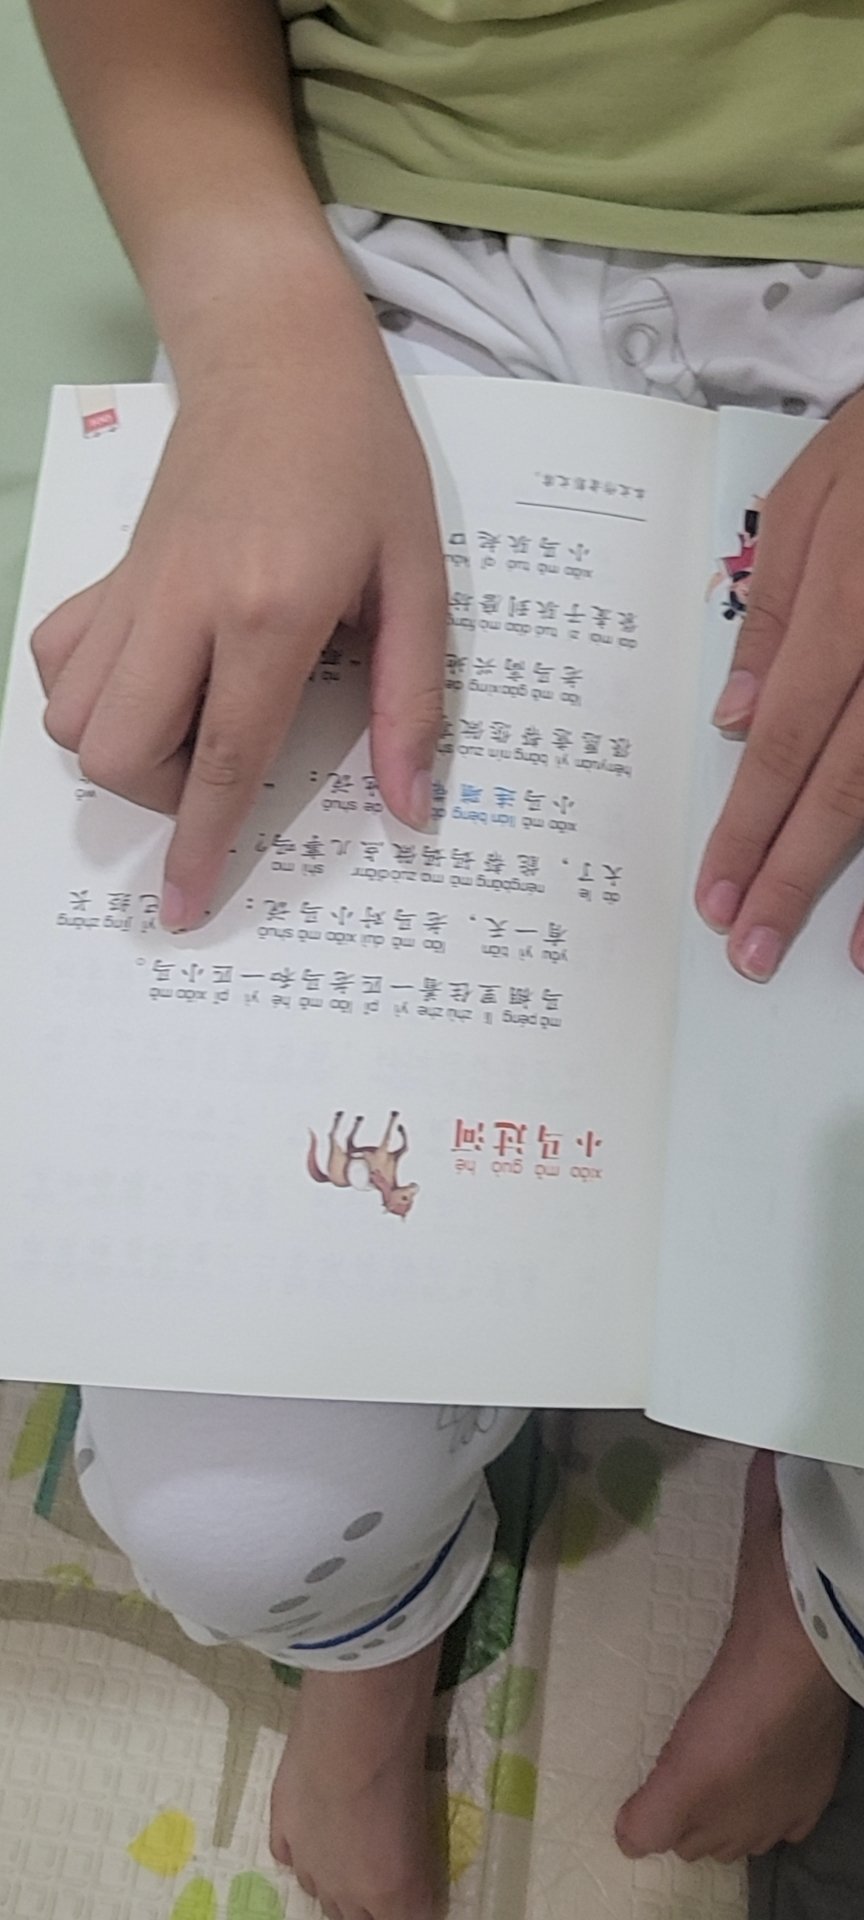 xiǎo mǎ guò hé
小马过河
mǎ péng lǐ zhù zhe yì pǐ lǎo mǎ hé yì pǐ xiǎo mǎ
马棚里住着一匹老马和一匹小马。
yǒu yì tiān lǎo mǎ duì xiǎo mǎ shuō yǐ jīng zhǎng
有一天，老马对小马说：已经长
dà le néng bāng mā ma zuò diǎnr shì ma
大了，能帮妈妈做点儿事吗？
xiǎo mǎ lián bèng shuō wǒ
小马连蹦 说：
hěn yuàn yì bāng nín zuò
很愿意帮您做
lǎo mǎ gāo xìng de nà
老马高兴地
dai mài zi tuó dào mò fáng
袋麦子驮到磨坊
xiǎo mǎ tuó qǐ kǒu
小马驮起口